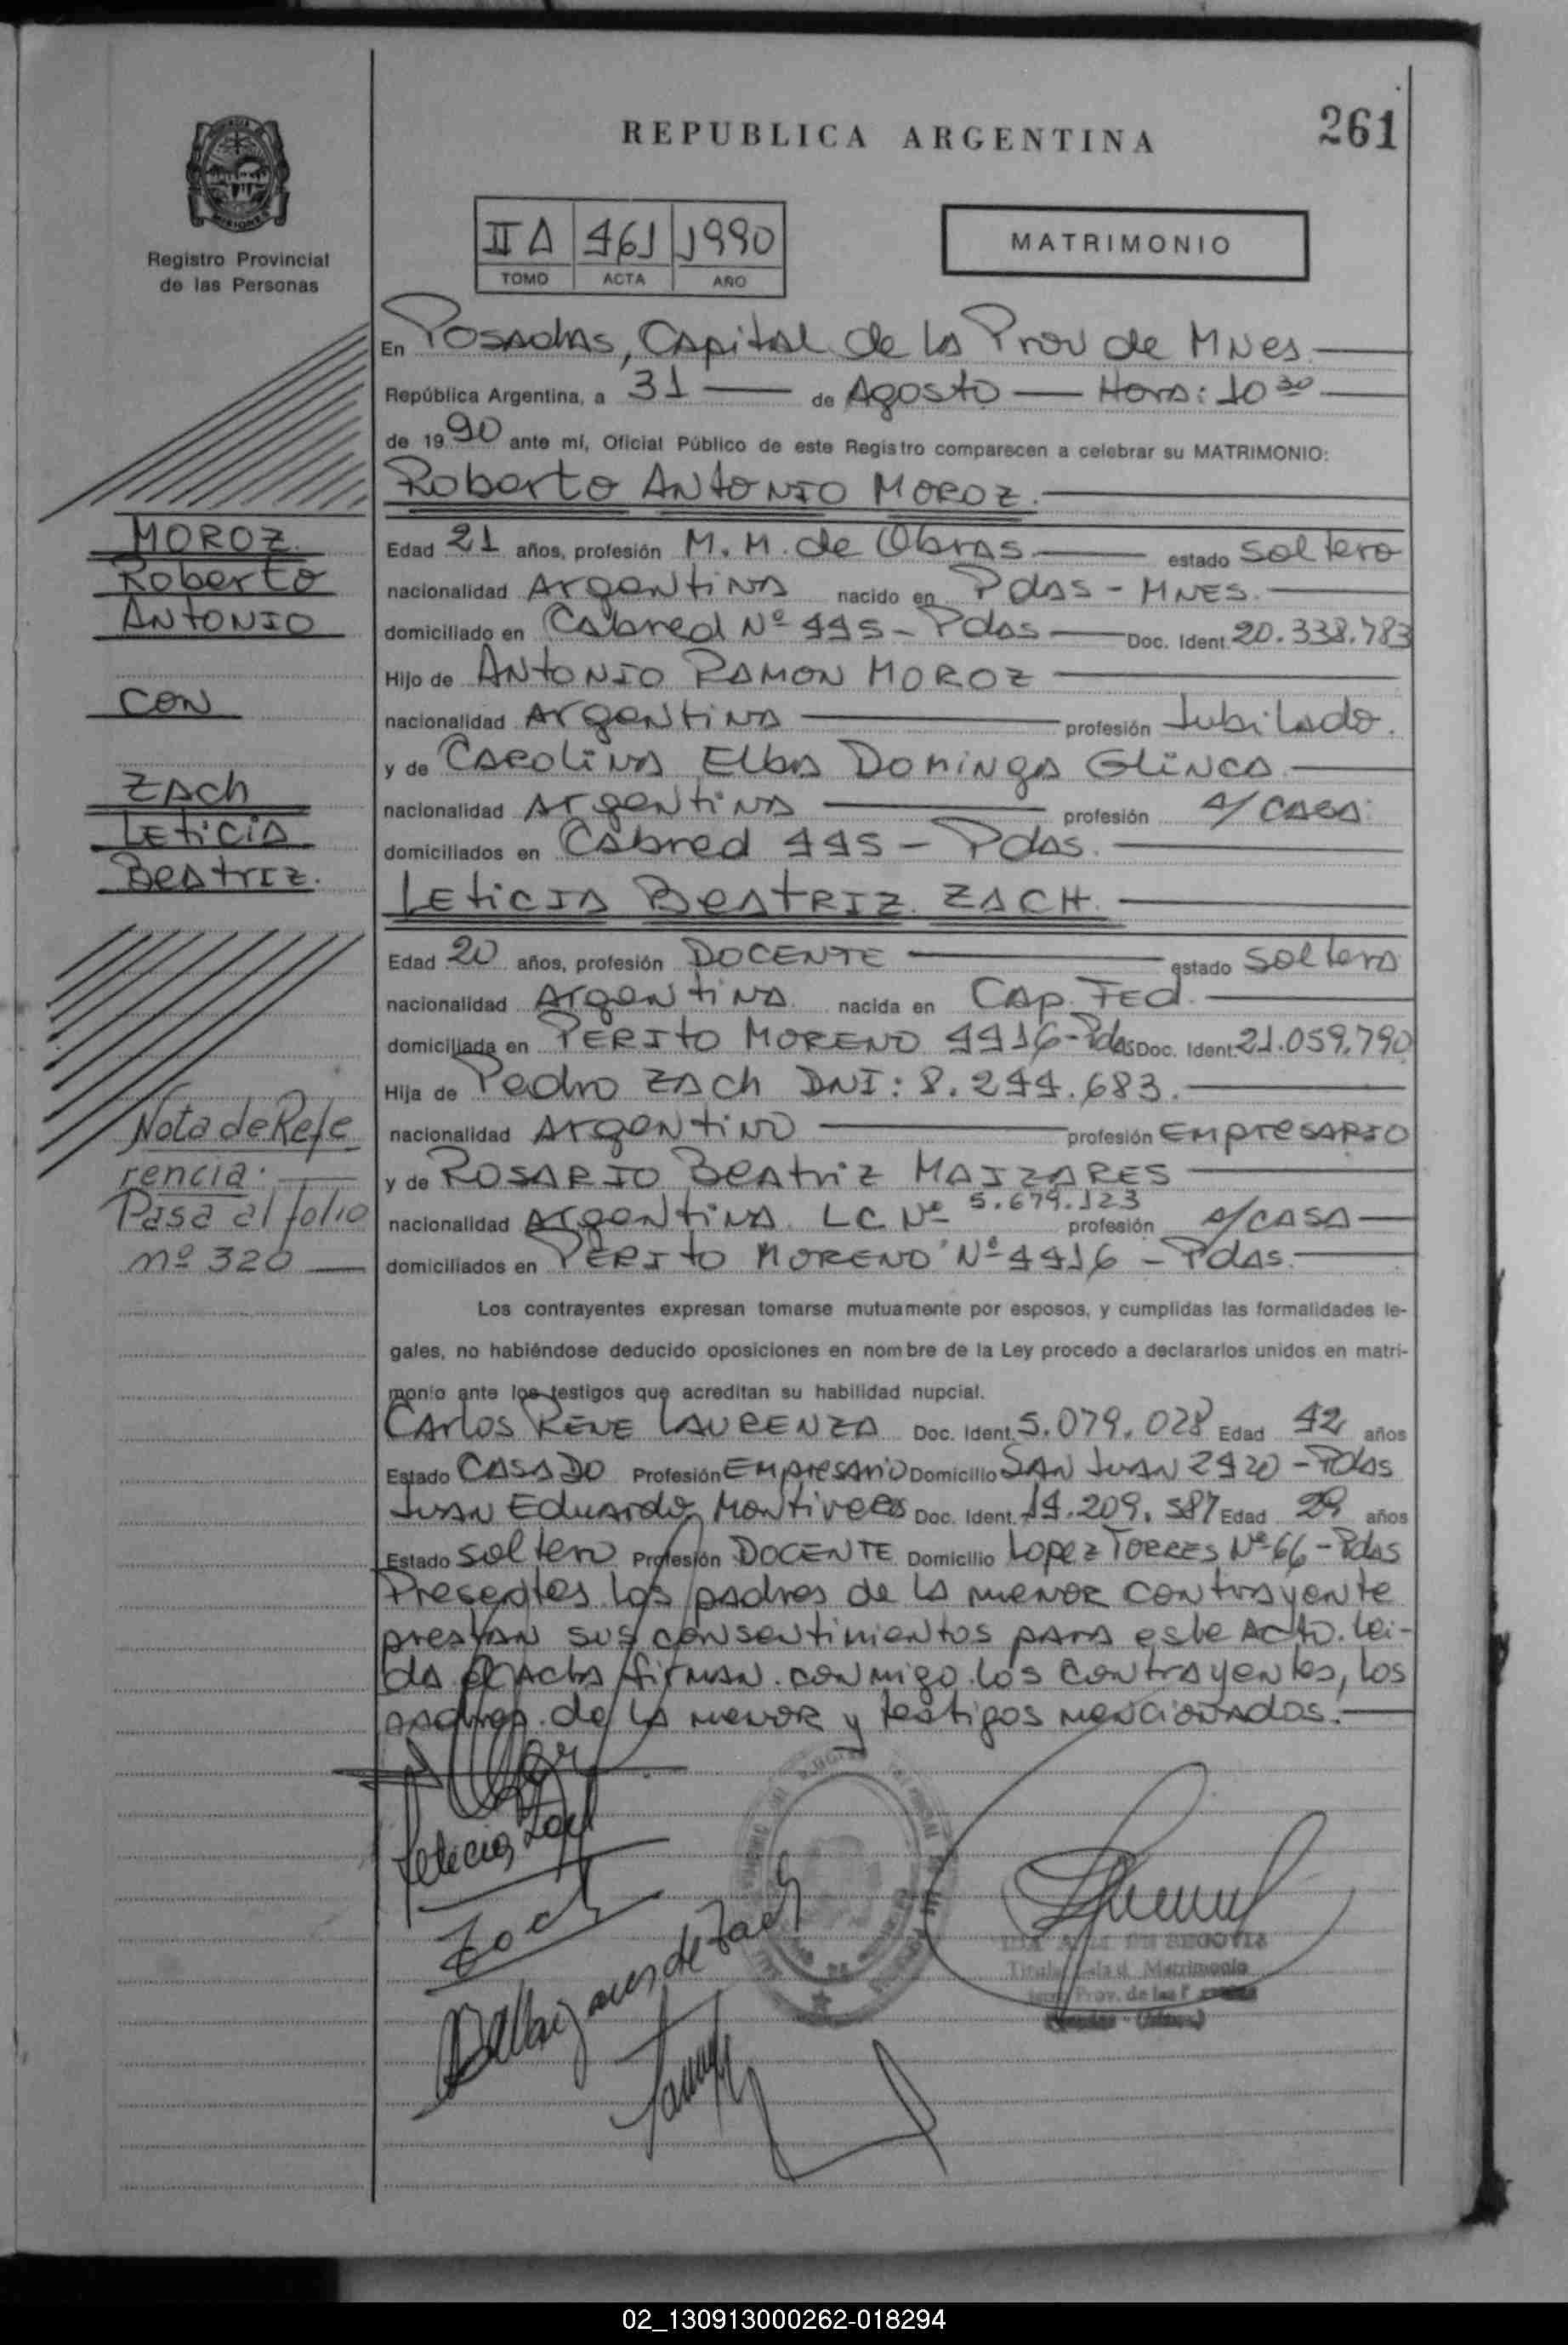 REPUBLICA ARGENTINA
261
Registro Provincial
de las Personas
II A 461 1990
TOMO ACTA AÑO
MATRIMONIO
En Posadas, Capital de la Prov de Mnes
República Argentina, a 31 de Agosto Hora: 10 30
de 1990 ante mí, Oficial Público de este Registro comparecen a celebrar su MATRIMONIO:
Roberto Antonio Moroz.
Edad 21 años, profesión M.M. de Obras estado soltero
nacionalidad Argentina nacido en Pdas - Mnes.
domiciliado en Cabred Nº 445 - Pdas Doc. Ident. 20.338.783
Hijo de Antonio Ramon Moroz
nacionalidad Argentina profesión Jubilado.
y de Carolina Elba Dominga Glinca
nacionalidad Argentina profesión a/ casa.
domiciliados en Cabred 445 - Pdas.
Leticia Beatriz Zach.
Edad 20 años, profesión Docente estado soltera
nacionalidad Argentina nacida en Cap. Fed.
domiciliada en Perito Moreno 4416 - Pdas Doc. Ident. 21.059.790
Hija de Pedro Zach DNI: 8.244.683.
nacionalidad Argentino profesión Empresario
y de Rosario Beatriz Maizares
nacionalidad Argentina L.C. Nº 5.674.123 profesión a/casa
domiciliados en Perito Moreno Nº 4416 - Pdas.
Los contrayentes expresan tomarse mutuamente por esposos, y cumplidas las formalidades le-
gales, no habiéndose deducido oposiciones en nombre de la Ley procedo a declararlos unidos en matri-
monio ante los testigos que acreditan su habilidad nupcial.
Carlos Rene Laurenza Doc. Ident. 5.079.028 Edad 42 años
Estado Casado Profesión Empresario Domicilio San Juan 2420 - Pdas
Juan Eduardo Montiveros Doc. Ident. 14.209.587 Edad 29 años
Estado soltero Profesión Docente Domicilio Lopez Torres Nº 66 - Pdas
Presentes los padres de la menor contrayente
prestan sus consentimientos para este acto. Lei-
da el acta firman conmigo los contrayentes, los
padres de la menor y testigos mencionados.
MOROZ
Roberto
Antonio
con
Zach
Leticia
Beatriz.
Nota de Refe
rencia:
Pasa al folio
nº 320
Leticia Zach
Zach
de Zach
DE SEGOVIA
Matrimonio
Prov. de las
02_130913000262-018294